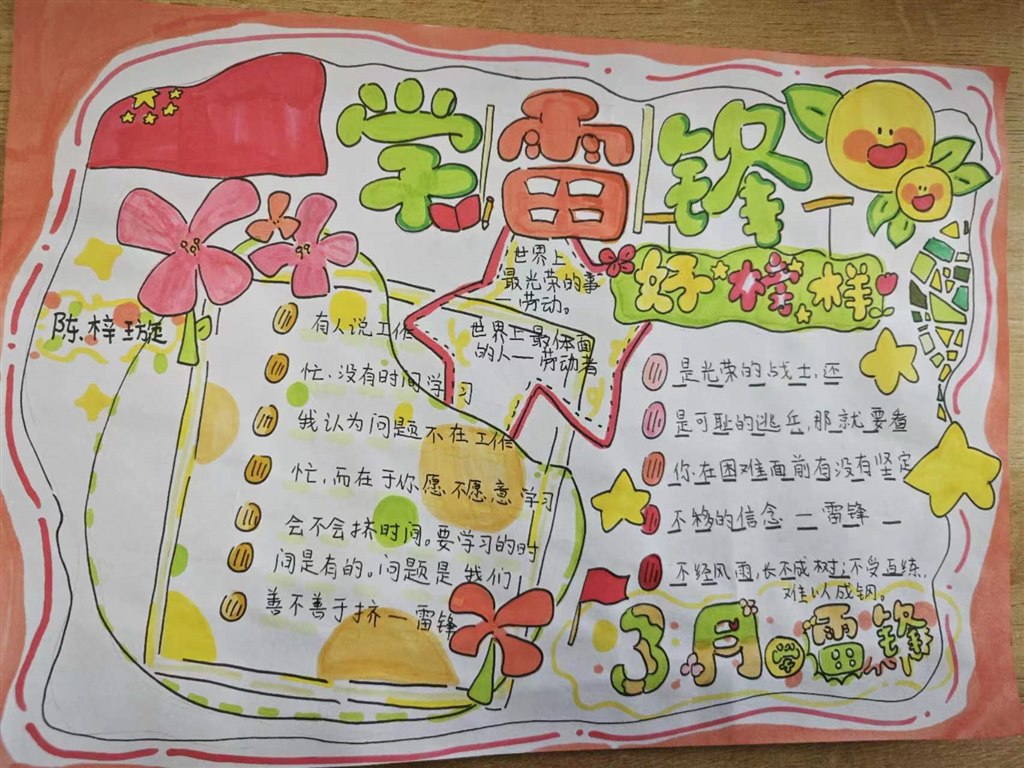 学雷锋
好榜样
陈梓璇
世界上
最光荣的事
—劳动。
世界上最体面
的人—劳动者
有人说工作
忙,没有时间学习
我认为问题不在工作
忙,而在于你愿不愿意学习
会不会挤时间。要学习的时
间是有的。问题是我们
善不善于挤—雷锋
是光荣的战士,还
是可耻的逃兵,那就要看
你在困难面前有没有坚定
不移的信念—雷锋—
不经风雨,长不成树;不受百练,
难以成钢。
3月学雷锋